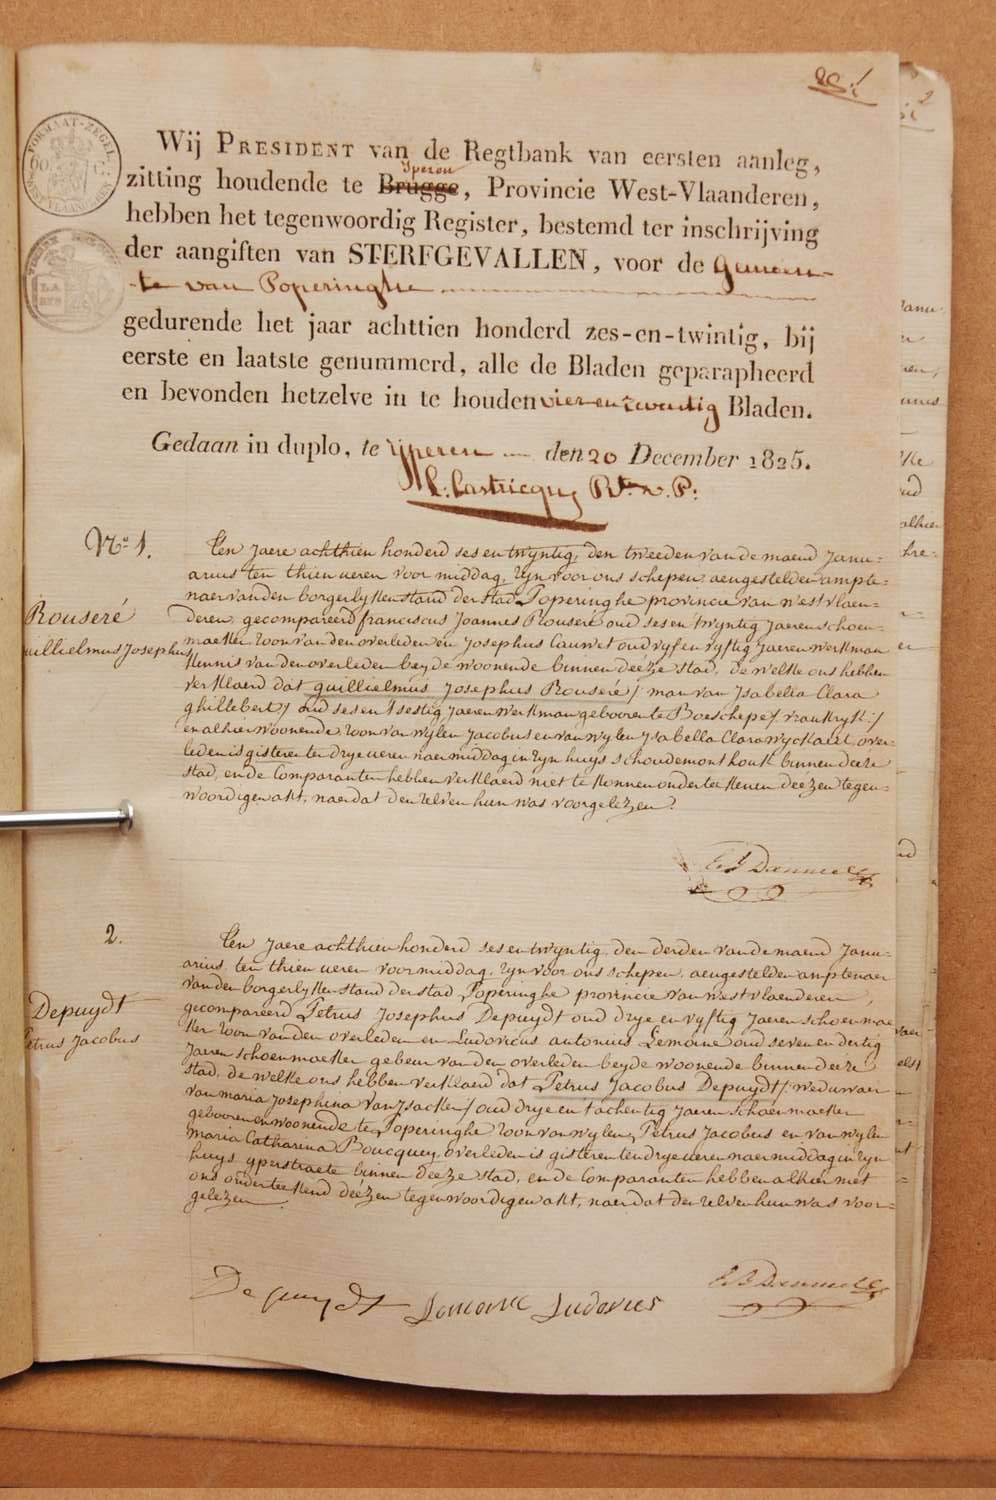 Wij PRESIDENT van de Regtbank van eersten aanleg,
Iperen
zitting houdende te Brugge, Provincie West-Vlaanderen,
hebben het tegenwoordig Register, bestemd ter inschrijving
der aangiften van STERFGEVALLEN, voor de Gemeen-
te van Poperinghe
gedurende het jaar achttien honderd zes-en-twintig, bij
eerste en laatste genummerd, alle de Bladen geparapheerd
en bevonden hetzelve in te houden vier en twentig Bladen.
Gedaan in duplo, te Yperen den 20 December 1825.
No. 1.
Rouseré
uillielmus Josephus
Een Jaere achthien honderd ses en twyntig, den tweeden van de maend Janu-
arius ten thien ueren voor middag, zyn voor ons schepen, aengestelden ampte-
naer van den borgerlyken stand der stad Poperinghe provincie van westvlaen-
deren, gecompareerd franciscus Joannes Rouseré oud ses en twyntig Jaeren schoen-
maeker zoon van den overleden en Josephus Cauwet oud vyf en vyftig Jaeren werkman
kennis van den overleden beyde woonende binnen deeze stad, de welke ons hebben
verklaerd dat guillielmus Josephus Rouseré / man van Isabella Clara
ghillebert / oud ses en 't sestig Jaeren werkman gebooren te Boeschepe / vrankryk /
en alhier woonende zoon van wylen Jacobus en van wylen Isabella Clara wyckaert, over-
leden is gisteren te drye ueren naermiddag in zyn huys schoudemonthouk binnen deeze
stad, en de Comparanten hebben verklaerd niet te konnen onderteekenen deézen tegen-
woordigen akt, naer dat den zelven hun was voorgelezen.
2.
Depuydt
Petrus Jacobus
Een Jaere achthien honderd ses en twyntig, den derden van de maend Janu-
arius, ten thien ueren voormiddag, zyn voor ons schepen, aengestelden amptenaer
van den borgerlyken stand der stad Poperinghe provincie van westvlaenderen,
gecompareerd Petrus Josephus Depuydt oud drye en vyftig Jaeren schoenmae
ker zoon van den overleden en Ludovicus antonius Lemoine oud seven en dertig
Jaeren schoenmaeker gebeur van den overleden beyde woonende binnen deéze
stad, de welke ons hebben verklaerd dat Petrus Jacobus Depuydt / weduwaer
van maria Josephina Van Isacker / oud drye en tachentig Jaeren schoenmaeker
gebooren en woonende te Poperinghe zoon van wylen Petrus Jacobus en van wylen
Maria Catharina Boucquey, overleden is gisteren ten drye ueren naermiddag in zyn
huys yperstraete binnen deeze stad, en de Comparanten hebben alhier met
ons onderteekend deézen tegenwoordigen akt, naer dat den zelven hun was voor-
gelezen
Depuydt Lemoine Ludovicus